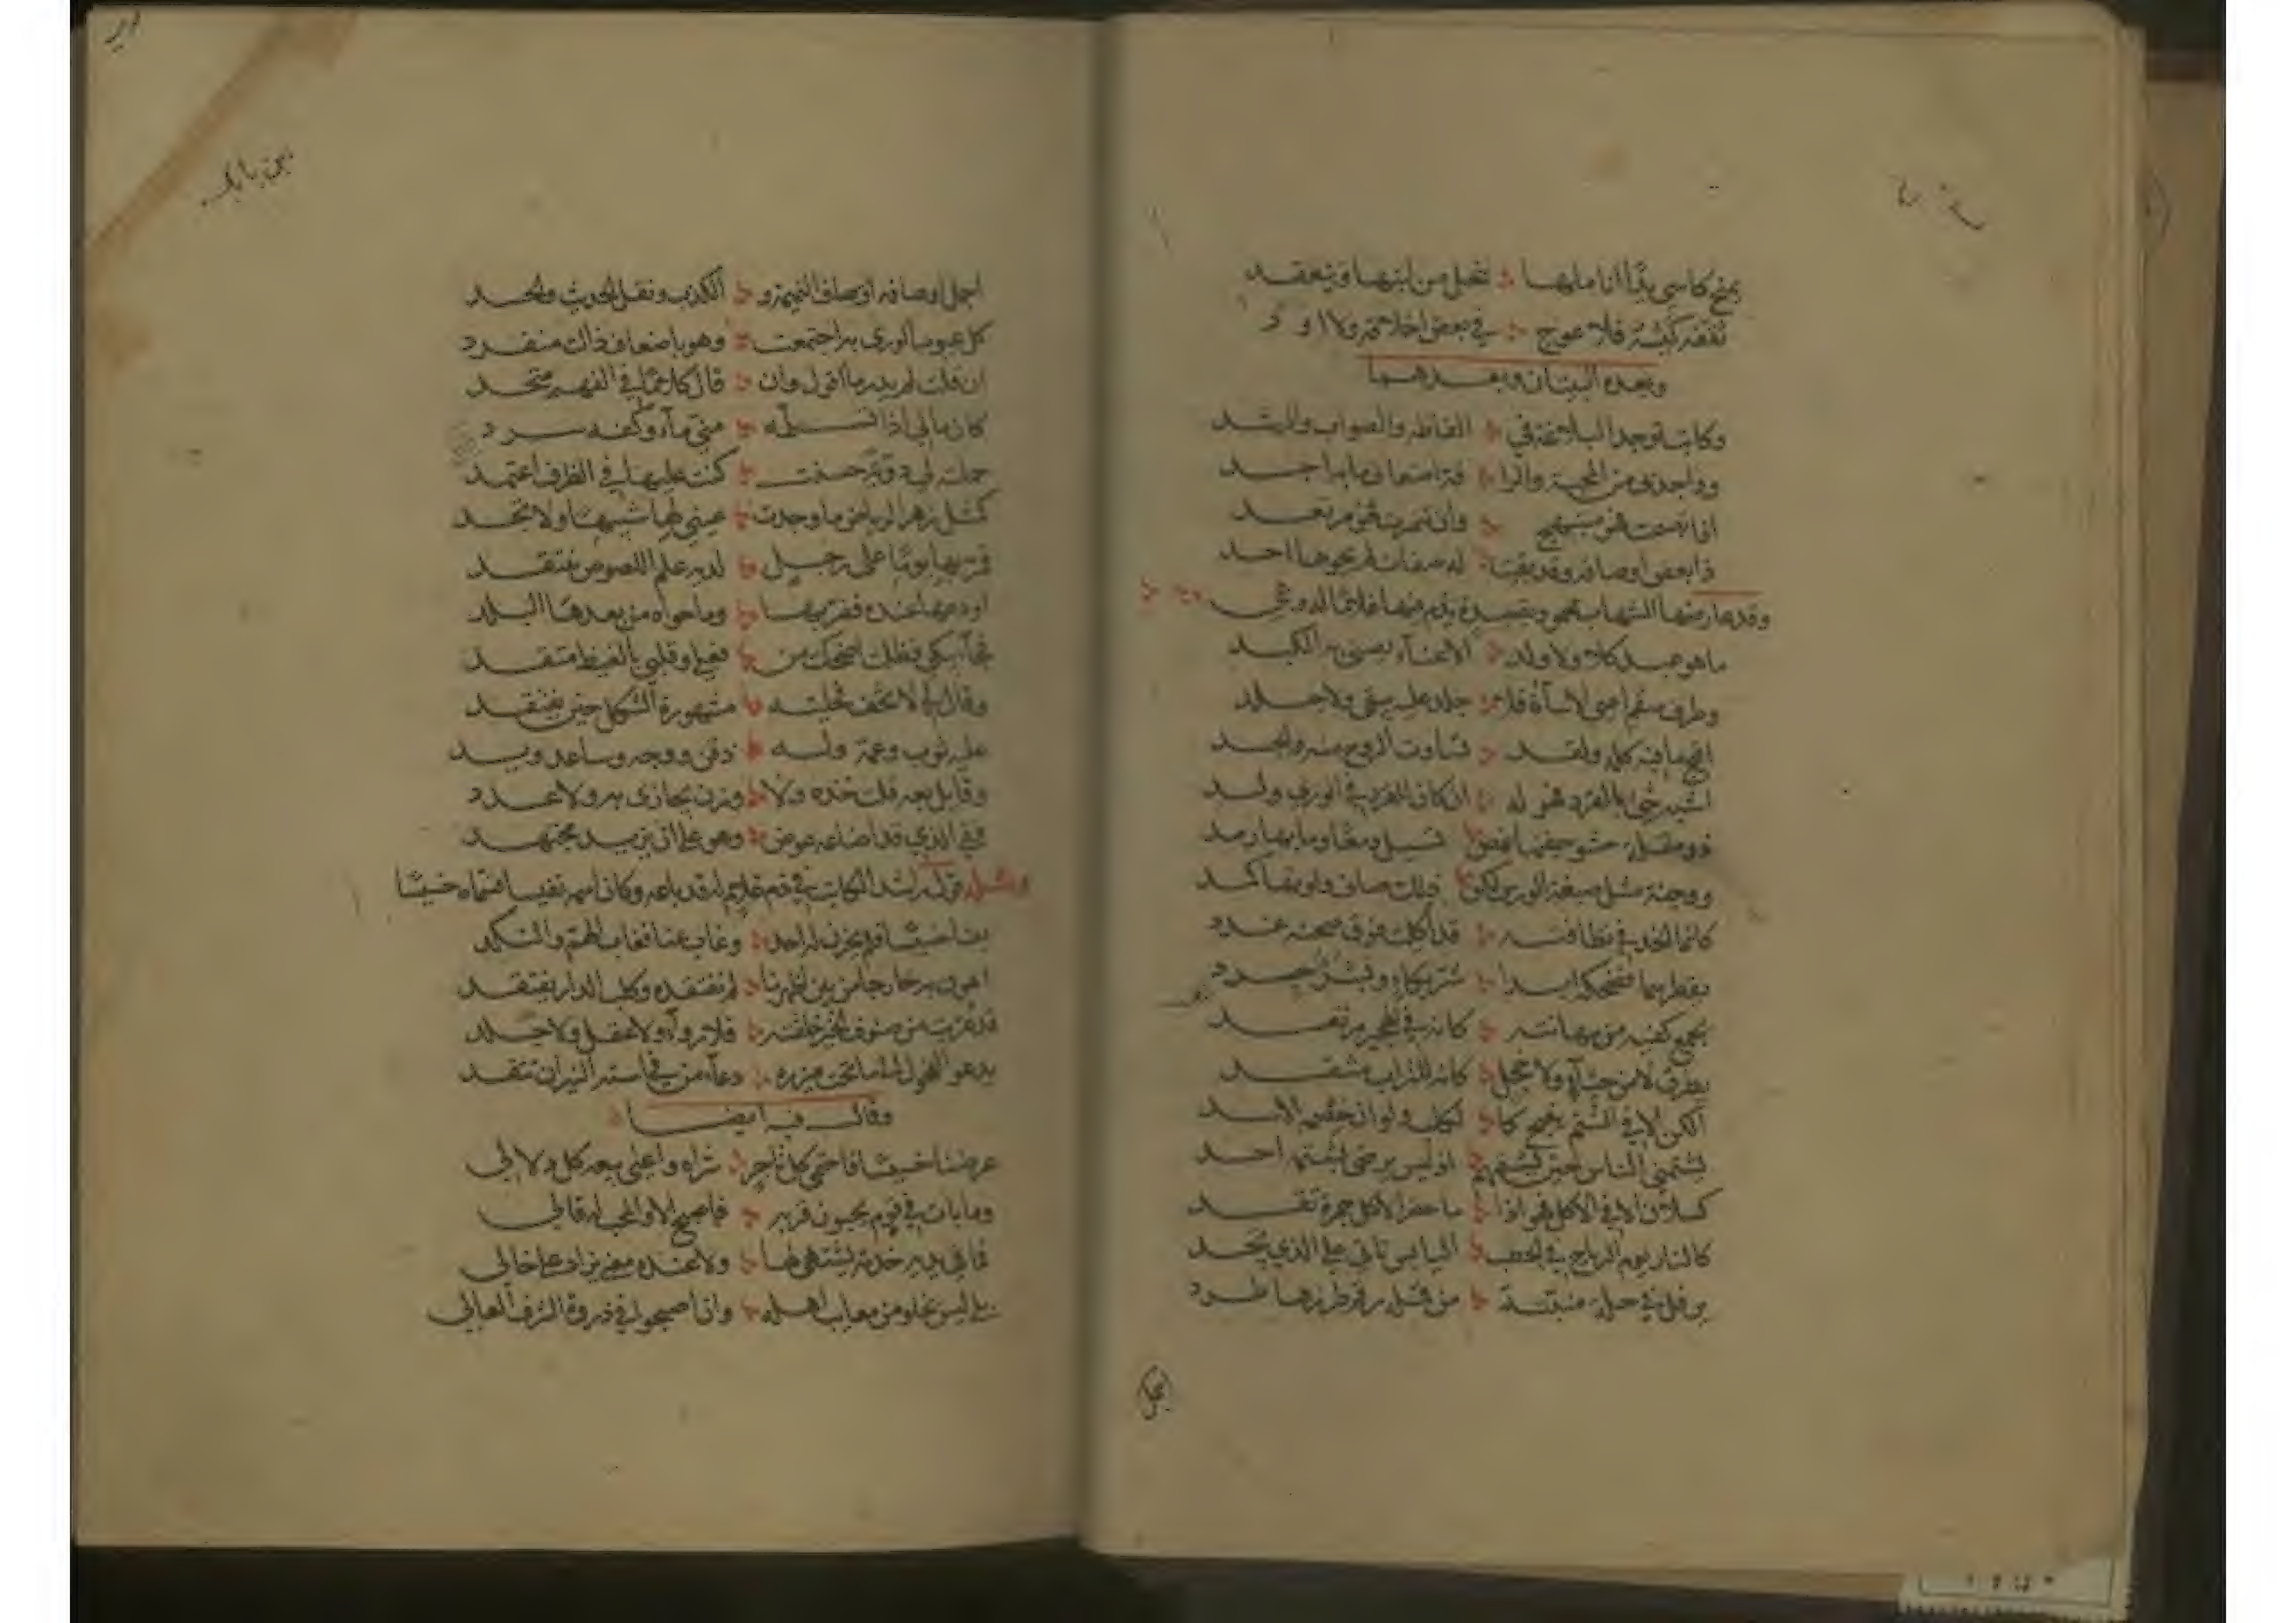 يمزح كاسي يدا اناملها تنحل من لينها وتنعقد
ثقفه كيسه فلا عوج في بعض اخلاقه ولا اود
وبعده البيتان وبعدهما
وكاتب توجد البلاغة في الفاظه والصواب والرشد
وواجد بي من المحبة والرا فة اضعاف ما به اجد
اذا تبسمت فهو مبتهج وان تنمرت فهو مرتعد
ذا بعض اوصافه وقد بقيت له صفات لم يحوها احد
وقد عارضها الشهاب محمود بقصيدة يذم فيها غلاما له وهي
ما هو عبد كلا ولا ولد الا عناء تضنى به الكبد
وفرط سقم اعيى الاساة فلا جلد عليه يبقى ولا جلد
اقبح ما فيه كله ولقد تساوت الروح منه والجسد
اشبه شي بالقرد فهو له ان كان للقرد في الورى ولد
ذو مقلة حشو جفنها غمص تسيل دمعا وما بها رمد
ووجنة مثل صبغة الورس لكن تلك صاف ولونها كمد
كانما الخد في نظافته قد اكلت فوق صحنه غدد
يقطر سما فضحكه ابدا شر بكاء وبشره حرد
يجمع كفيه من مهانته كانه في الهجير مرتعد
يطرق لا من حياء ولا خجل كانه للتراب منتقد
الكن الا في الشتم ينبح كالـ كلب ولو ان خصمه الاسد
يشتمني الناس حين يشتمهم اذ ليس يرضى بشتمه احد
كسلان الا في الاكل فهو اذا ما حضر الاكل جمرة تقد
كالنار يوم الرياح في الحطب اليابس تاتي على الذي تجد
يرفل في حلة منبتة من قمله رقم طرزها طرد
اجمل اوصافه النميمة والكذب ونقل الحديث والحسد
كل عيوب الورى به اجتمعت وهو باضعاف ذاك منفرد
ان قلت لم يدر ما اقول وان قال كلانا في الفهم متحد
كان مالي اذا تسلمه مني ماء وكفه سرد
حملته لي دوية حسنت كنت عليها في الظرف اعتمد
كمثل زهر الرياض ما وجدت عيني لها شبيها ولا تجد
فمر بها يوما على رجل لديه علم اللصوص يفتقد
اودعها عنده ففر بها وما حواه من بعدها البلد
فجاء يبكي فظلت اضحك من فعلي وقلبي بالغيظ متقد
وقال لي لا تخف فحليته مشهورة الشكل حين يفتقد
عليه ثوب وعمة وله ذقن ووجه وساعد ويد
وقايل بعه قلت خذه ولا وزن تجازي به ولا عدد
ففي الذي قد اضاعه عوض وهو على ان يزيد مجتهد
ومثله قول راشد الكاتب في ذم غلام له قد باعه وكان اسمه نفيسا فسماه خسيسا
بعنا خسيسا فلم يحزن له احد وغاب عنا فغاب الهم والنكد
اهون به خارجا من بين اظهرنا لم نفتقده وكلب الدار يفتقد
قد عريت من صنوف الخير خلقته فلا رواء ولا عقل ولا جلد
يدعو الفحول الى ما تحت ميزره دعاء من في استه النيران تتقد
وقال فيه ايضا
عرضنا خسيسا فاحتمى كل تاجر شراه واعيى بيعه كل دلال
وما بات في قوم يحبون قربه فاصبح الا والمحب له قالي
فما في يديه خدمة يشتهى لها ولا عنده معنى يراد على حال
بلى ليس يخلو من معايب اهله وان اصبحوا في ذروة الشرف العالي